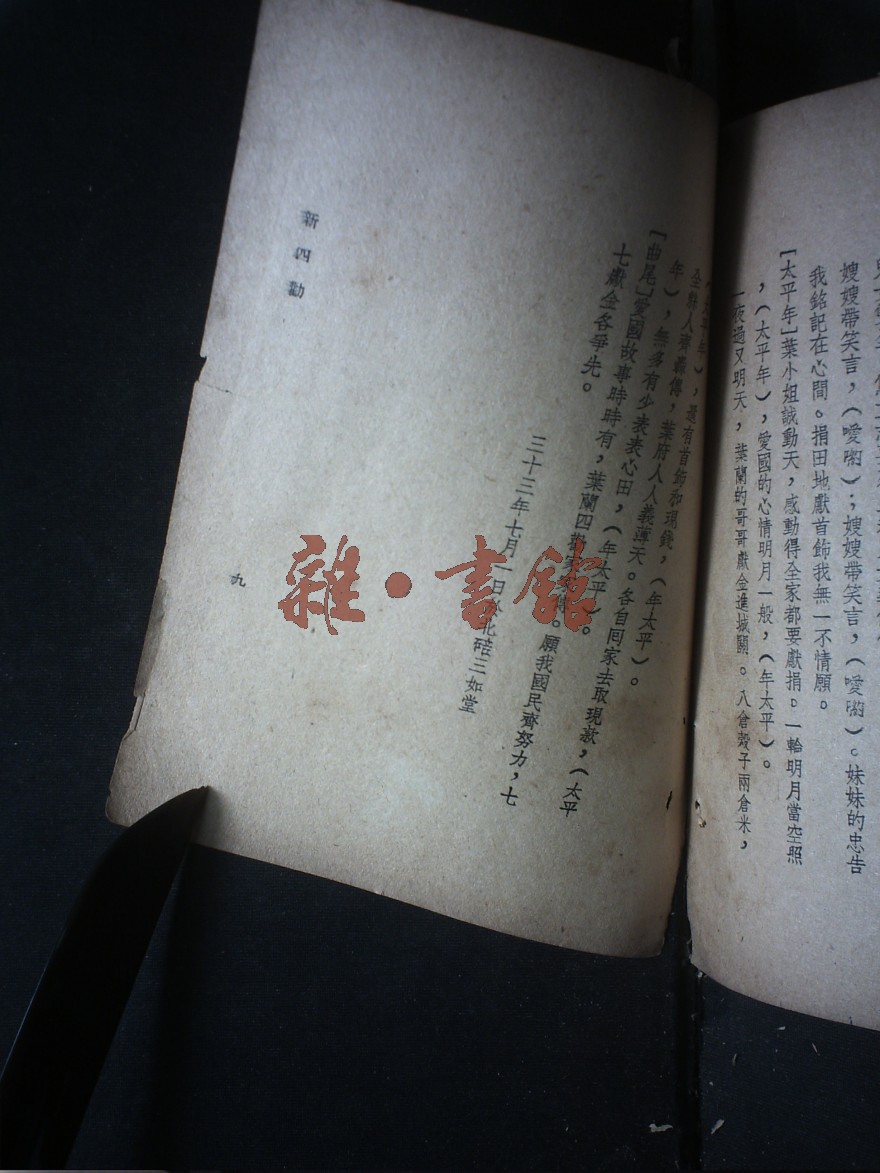 嫂嫂帶笑言，（噯喲）；嫂嫂帶笑言，（噯喲）。妹妹的忠告
我銘記在心間。捐田地獻首飾我無一不情願。
[太平年]葉小姐誠動天，感動得全家都要獻捐。一輪明月當空照
，（太平年），愛國的心情明月一般，（年太平）。
一夜過又明天，葉蘭的哥哥獻金進城關。八倉穀子兩倉米，
（太平年），還有首飾和現錢，（年太平）。
全縣人齊轟傳，葉府人人義薄天。各自回家去取現款，（太平
年），無多有少表表心田，（年太平）。
[曲尾]愛國故事時時有，葉蘭四勸。願我國民齊努力，七
七獻金各爭先。
三十三年七月一日北碚三如堂
新四勸
九
雜·書館